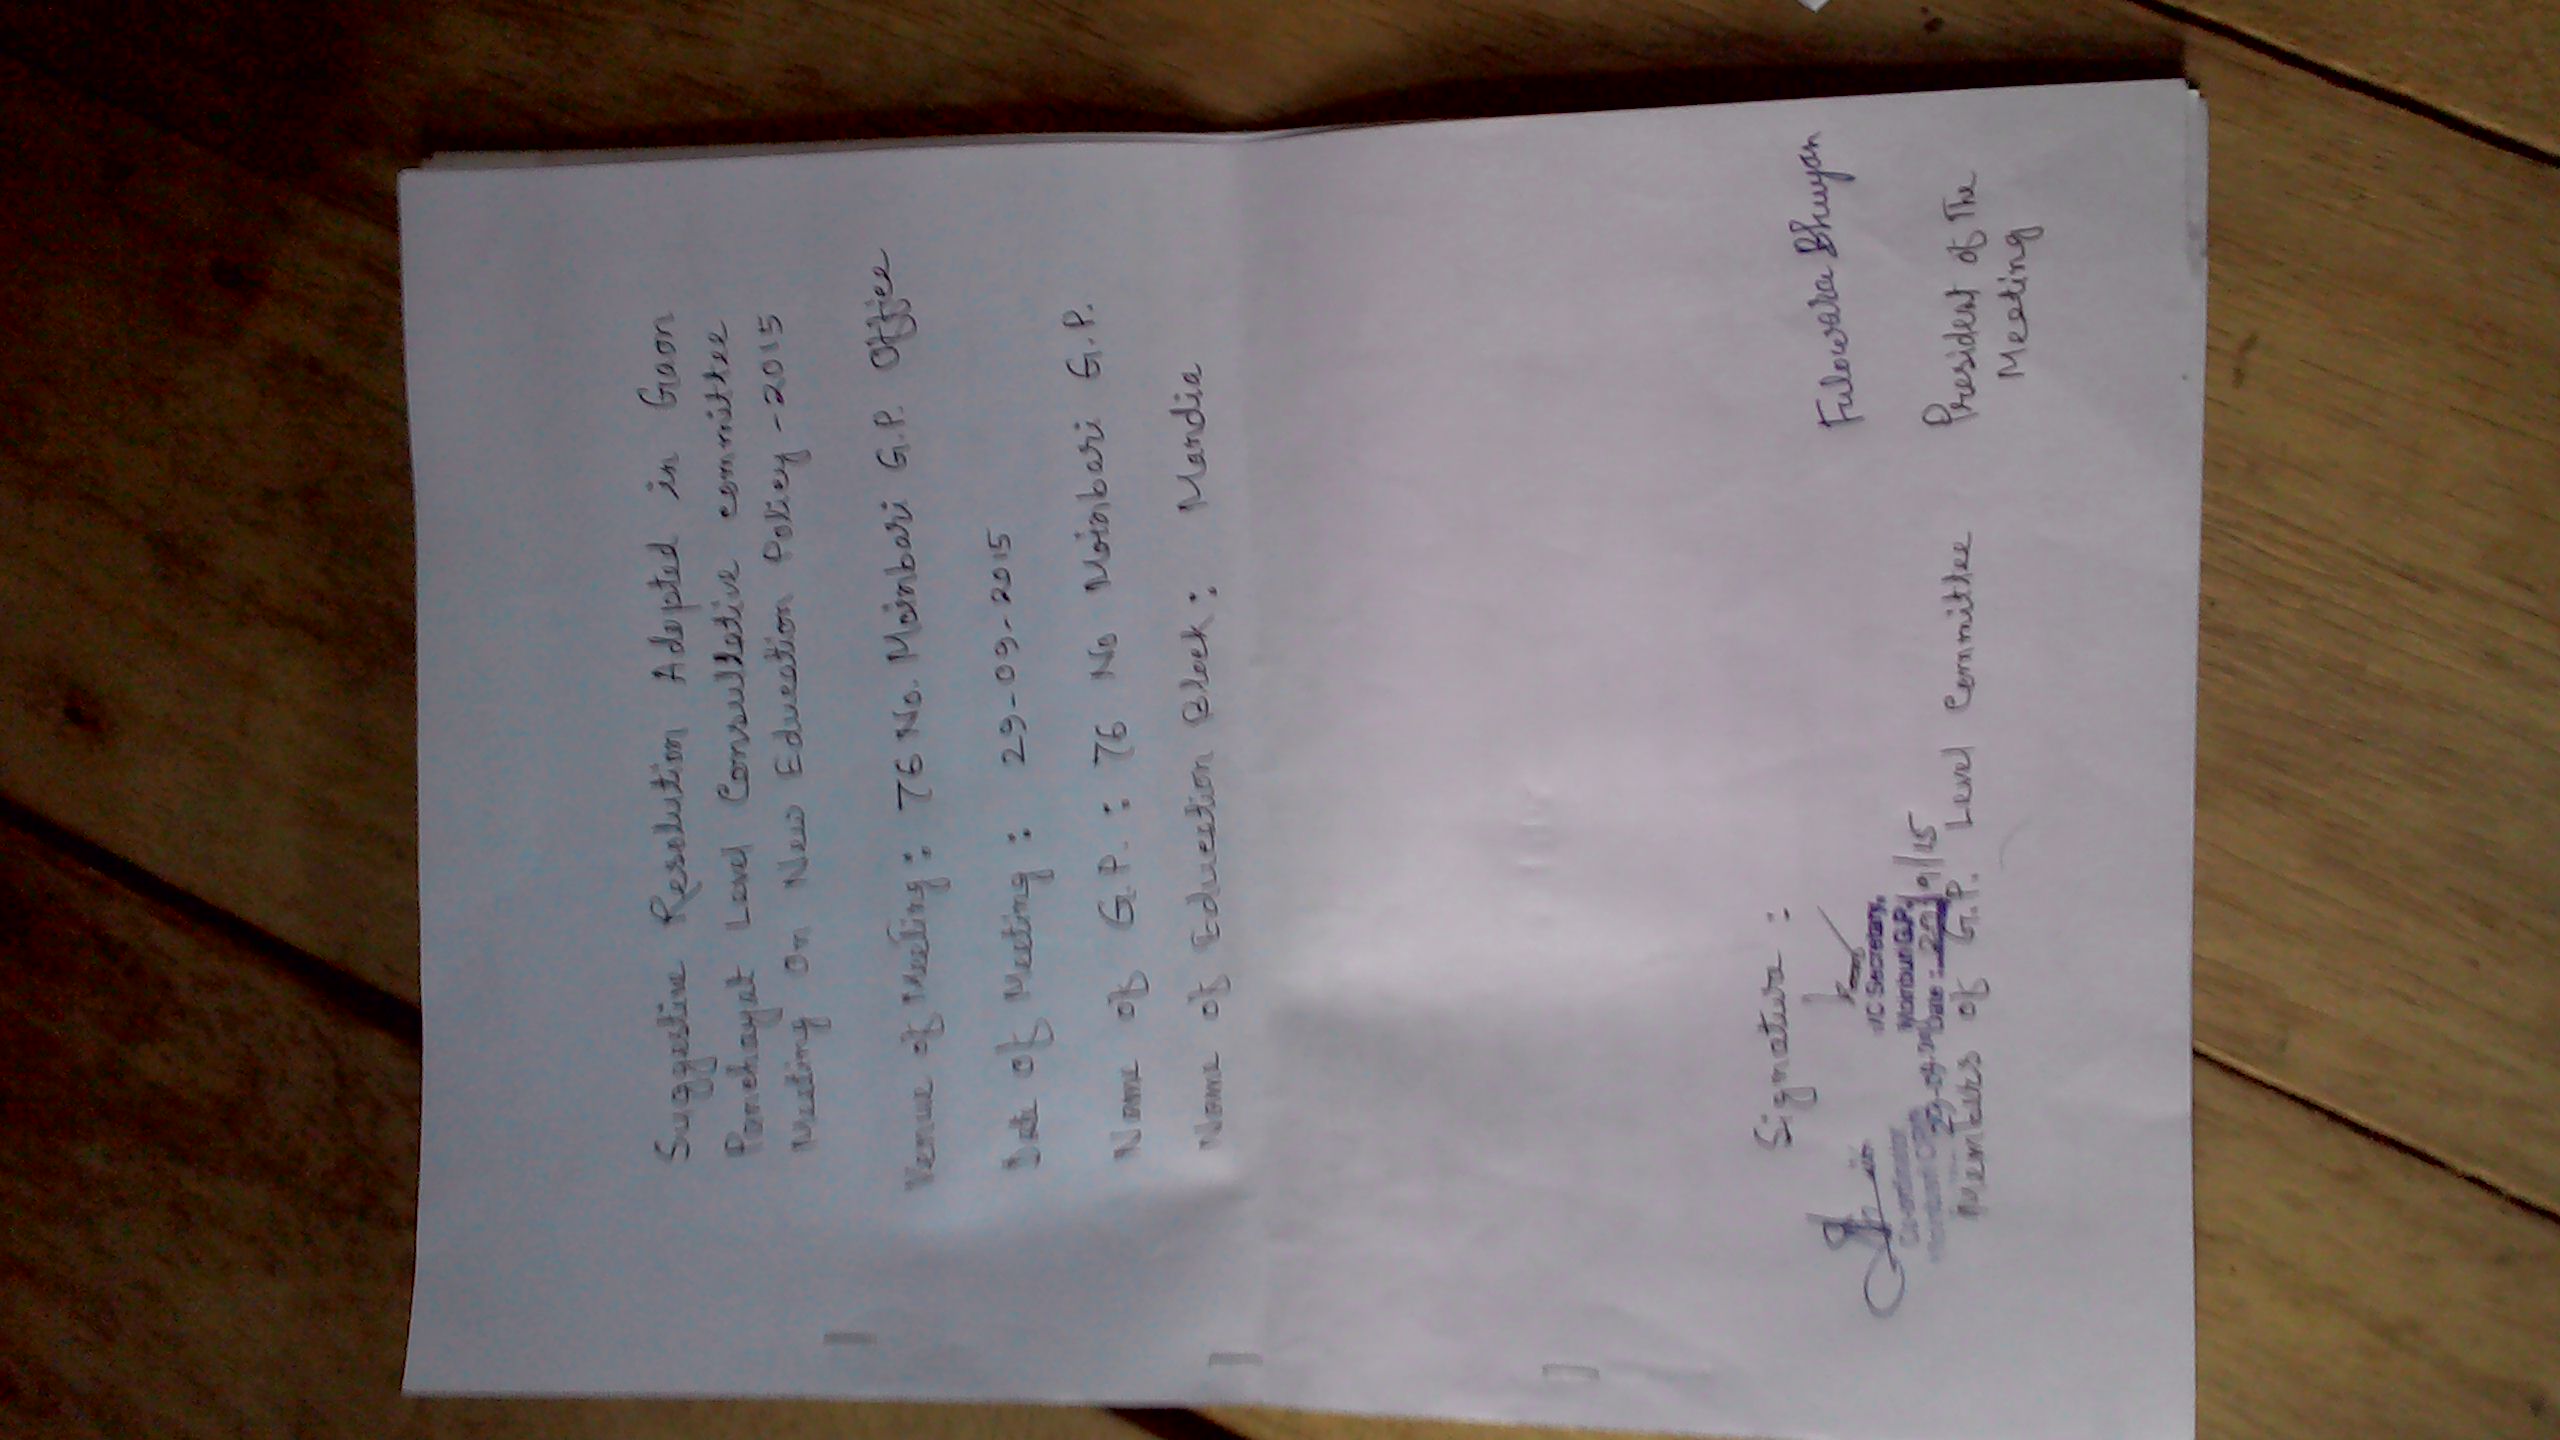 Suggestive Resolution Adopted in Gaon
Panchayat Level Consultative committee
Meeting on New Education Policy -2015
Venue of Meeting : 76 No. Moinbari G.P. Office
Date of Meeting : 29-09-2015
Name of G.P. : 76 No Moinbari G.P.
Name of Education Block : Mandia
Signature :
Fulowara Bhuyan
President of The
Meeting
I/C Secretary,
Moinbari G.P.
Date : 29/9/15
Co-ordinator
Members of G.P. Level Committee